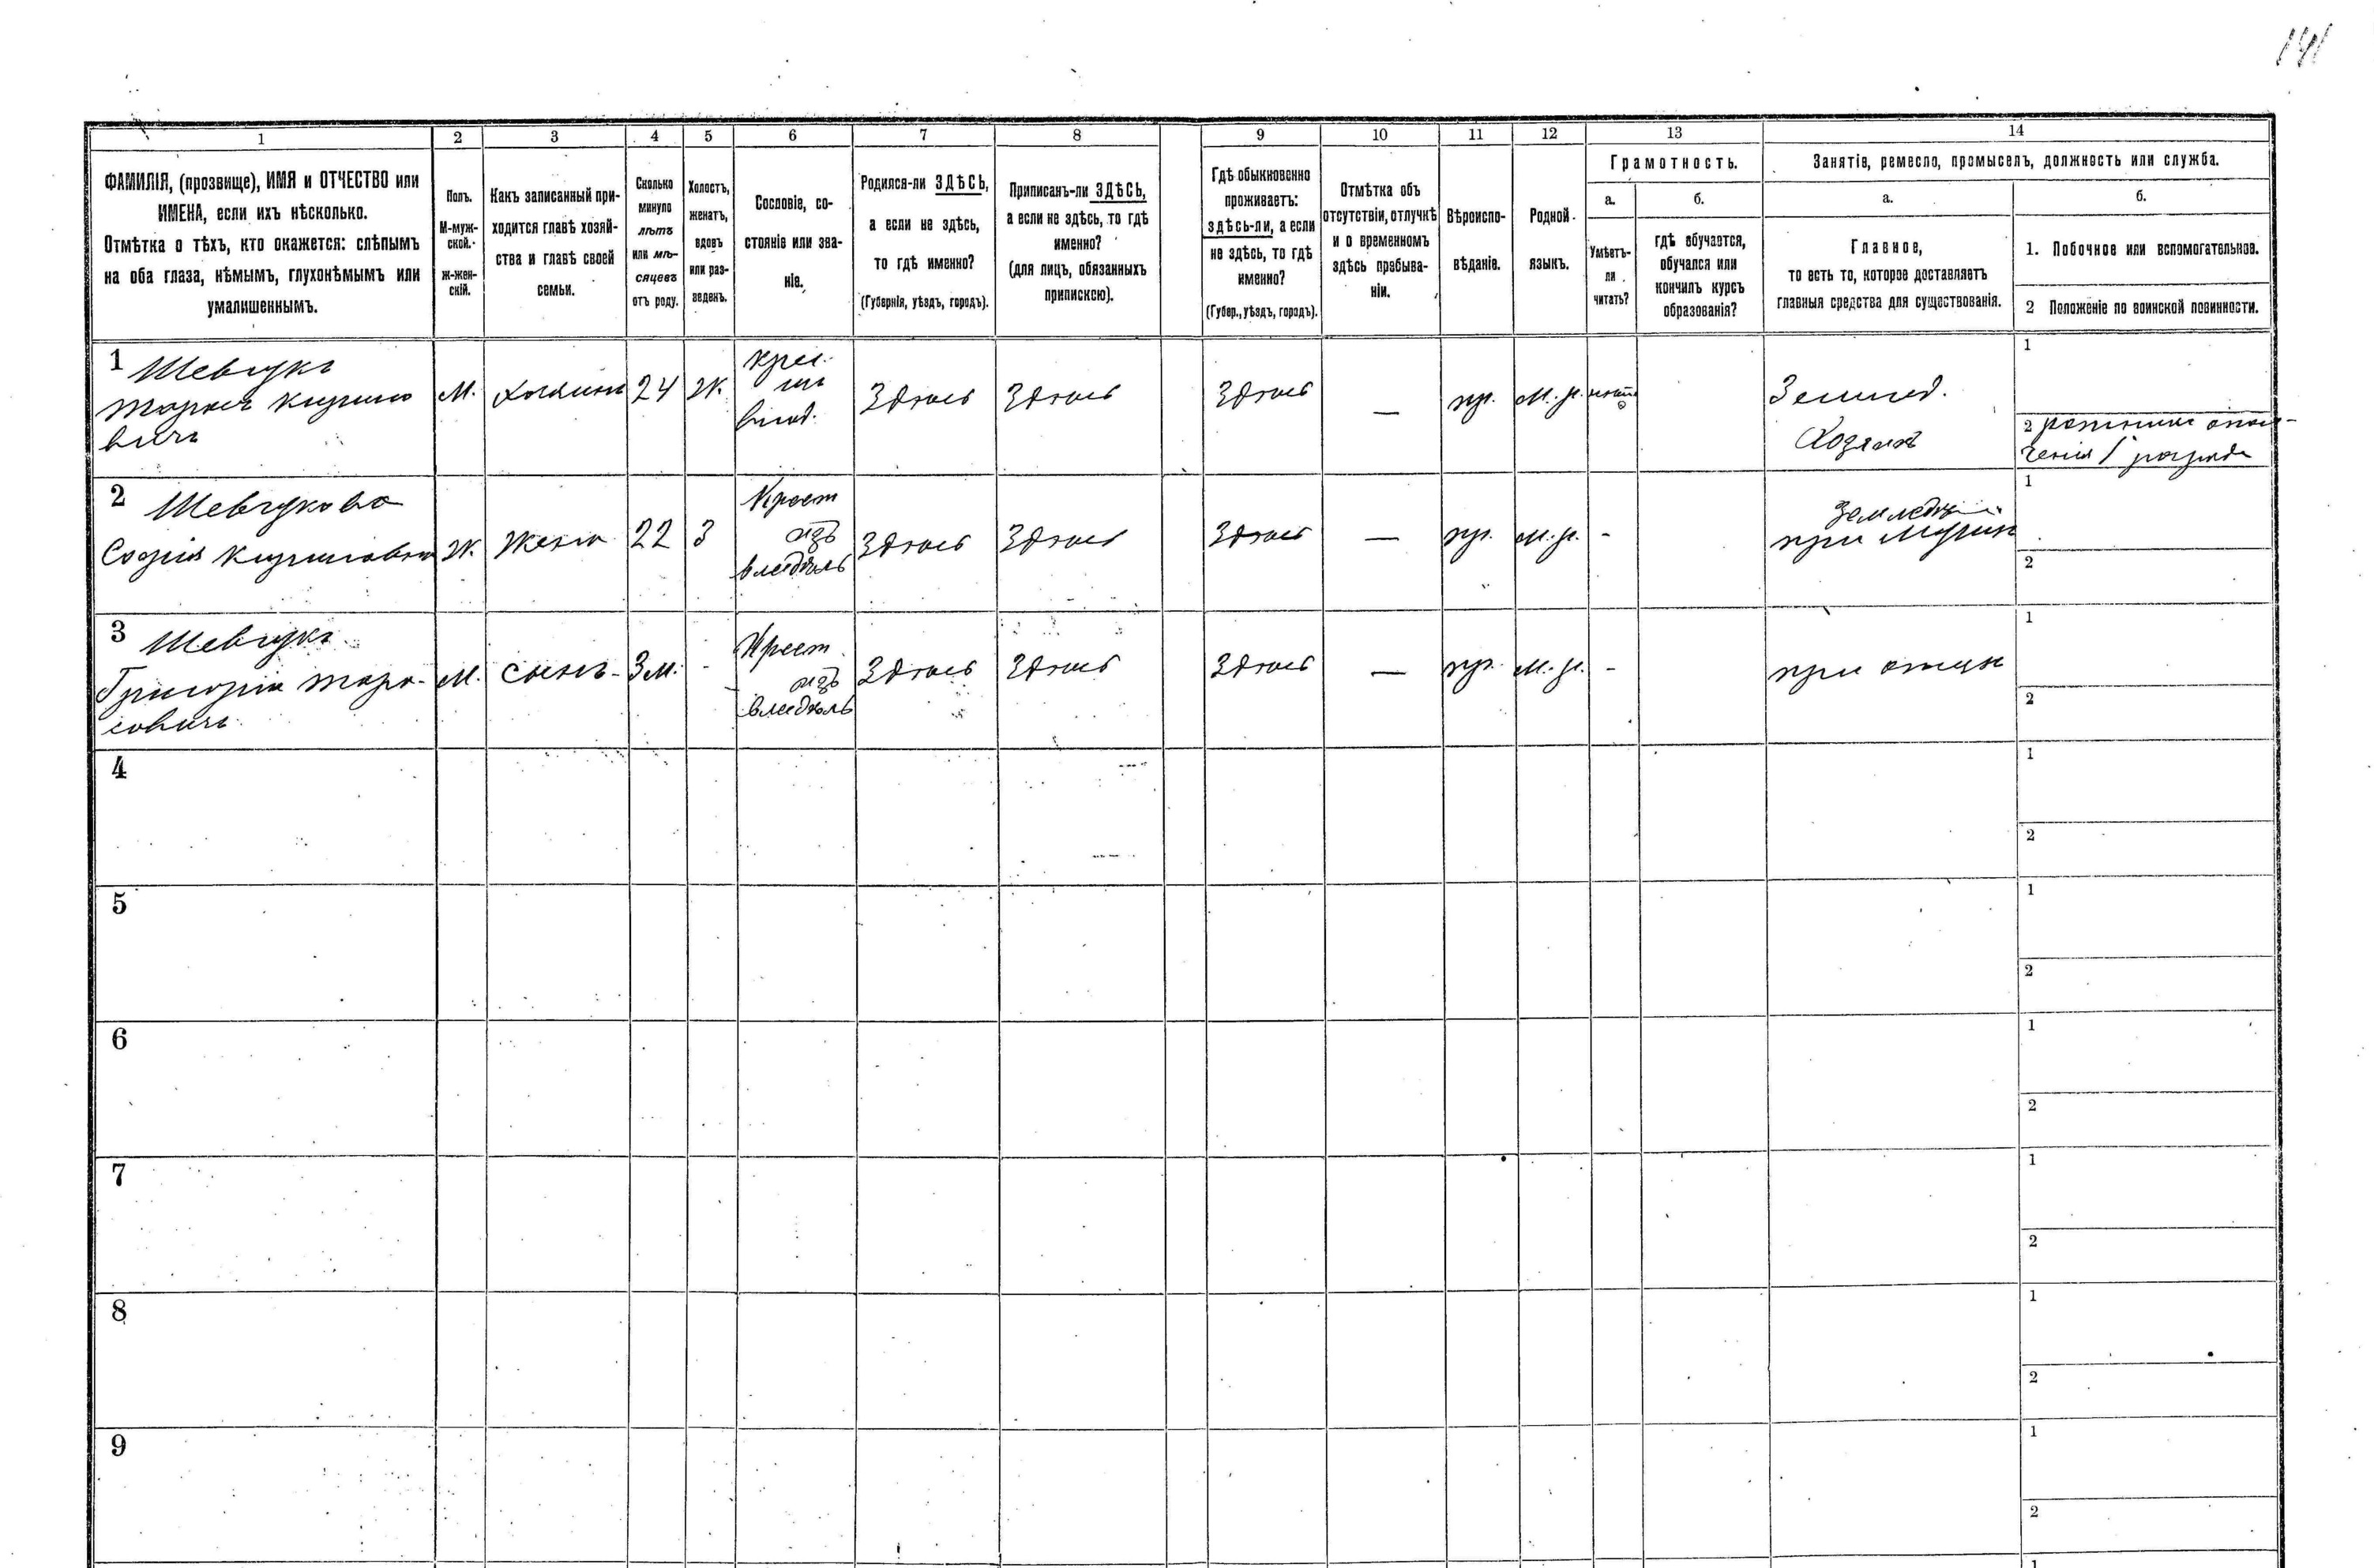 141
1 2 3 4 5 6 7 8 9 10 11 12 13 14
ФАМИЛІЯ, (прозвище), ИМЯ и ОТЧЕСТВО или
ИМЕНА, если ихъ нѣсколько.
Отмѣтка о тѣхъ, кто окажется: слѣпымъ
на оба глаза, нѣмымъ, глухонѣмымъ или
умалишеннымъ.
Полъ.
М-муж-
ской.
ж-жен-
скій.
Какъ записанный при-
ходится главѣ хозяй-
ства и главѣ своей
семьи.
Сколько
минуло
лѣтъ
или мѣ-
сяцевъ
отъ роду.
Холостъ,
женатъ,
вдовъ
или раз-
веденъ.
Сословіе, со-
стояніе или зва-
ніе.
Родился-ли ЗДѢСЬ,
а если не здѣсь,
то гдѣ именно?
(Губернія, уѣздъ, городъ).
Приписанъ-ли ЗДѢСЬ,
а если не здѣсь, то гдѣ
именно?
(для лицъ, обязанныхъ
припискою).
Гдѣ обыкновенно
проживаетъ:
здѣсь-ли, а если
не здѣсь, то гдѣ
именно?
(Губер., уѣздъ, городъ).
Отмѣтка объ
отсутствіи, отлучкѣ
и о временномъ
здѣсь пребыва-
ніи.
Вѣроиспо-
вѣданіе.
Родной
языкъ.
Грамотность.
а.
Умѣетъ-
ли
читать?
б.
гдѣ обучается,
обучался или
кончилъ курсъ
образованія?
Занятіе, ремесло, промыселъ, должность или служба.
а.
Главное,
то есть то, которое доставляетъ
главныя средства для существованія.
б.
1. Побочное или вспомогательное.
2 Положеніе по воинской повинности.
1 Шевчукъ
Тарасъ Кирило
вичъ
М.
хозяинъ
24
Ж.
крес.
изъ
влад.
Здѣсь
Здѣсь
Здѣсь
—
пр.
м. р.
нѣтъ
Землед.
Хозяинъ
1
2 ратникъ опол-
ченія 1 разряда
2 Шевчукова
Софія Кириловна
Ж.
жена
22
З
Крест
изъ
владѣль
Здѣсь
Здѣсь
Здѣсь
—
пр.
м. р.
-
Земледѣл
при мужѣ
1
2
3 Шевчукъ
Григорій Тара-
совичъ
М.
сынъ
3 м.
-
Крест
изъ
владѣль
Здѣсь
Здѣсь
Здѣсь
—
пр.
м. р.
-
при отцѣ
1
2
4
1
2
5
1
2
6
1
2
7
1
2
8
1
2
9
1
2
1